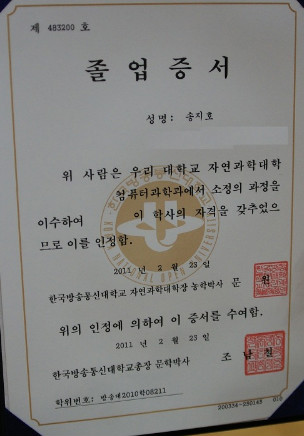 제 483200 호
졸업증서
성명: 송지호
위 사람은 우리 대학교 자연과학대학
컴퓨터과학과에서 소정의 과정을
이수하여 이 학사의 자격을 갖추었으
므로 이를 인정함.
2011 년 2 월 23 일
한국방송통신대학교 자연과학대학장 농학박사 문 원
위의 인정에 의하여 이 증서를 수여함.
2011 년 2 월 23 일
한국방송통신대학교총장 문학박사 조 남 철
학위번호: 방송대2010학08211